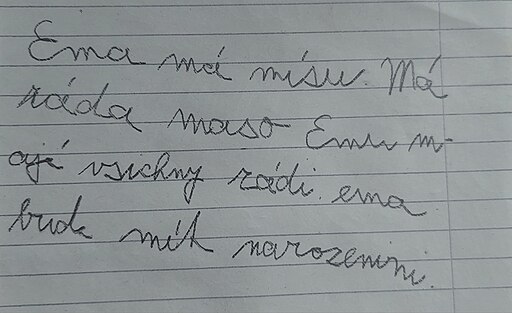 Ema má mísu. Má
ráda maso Emu m-
ajé vsichny rádi. ema
bude mít narozenini.